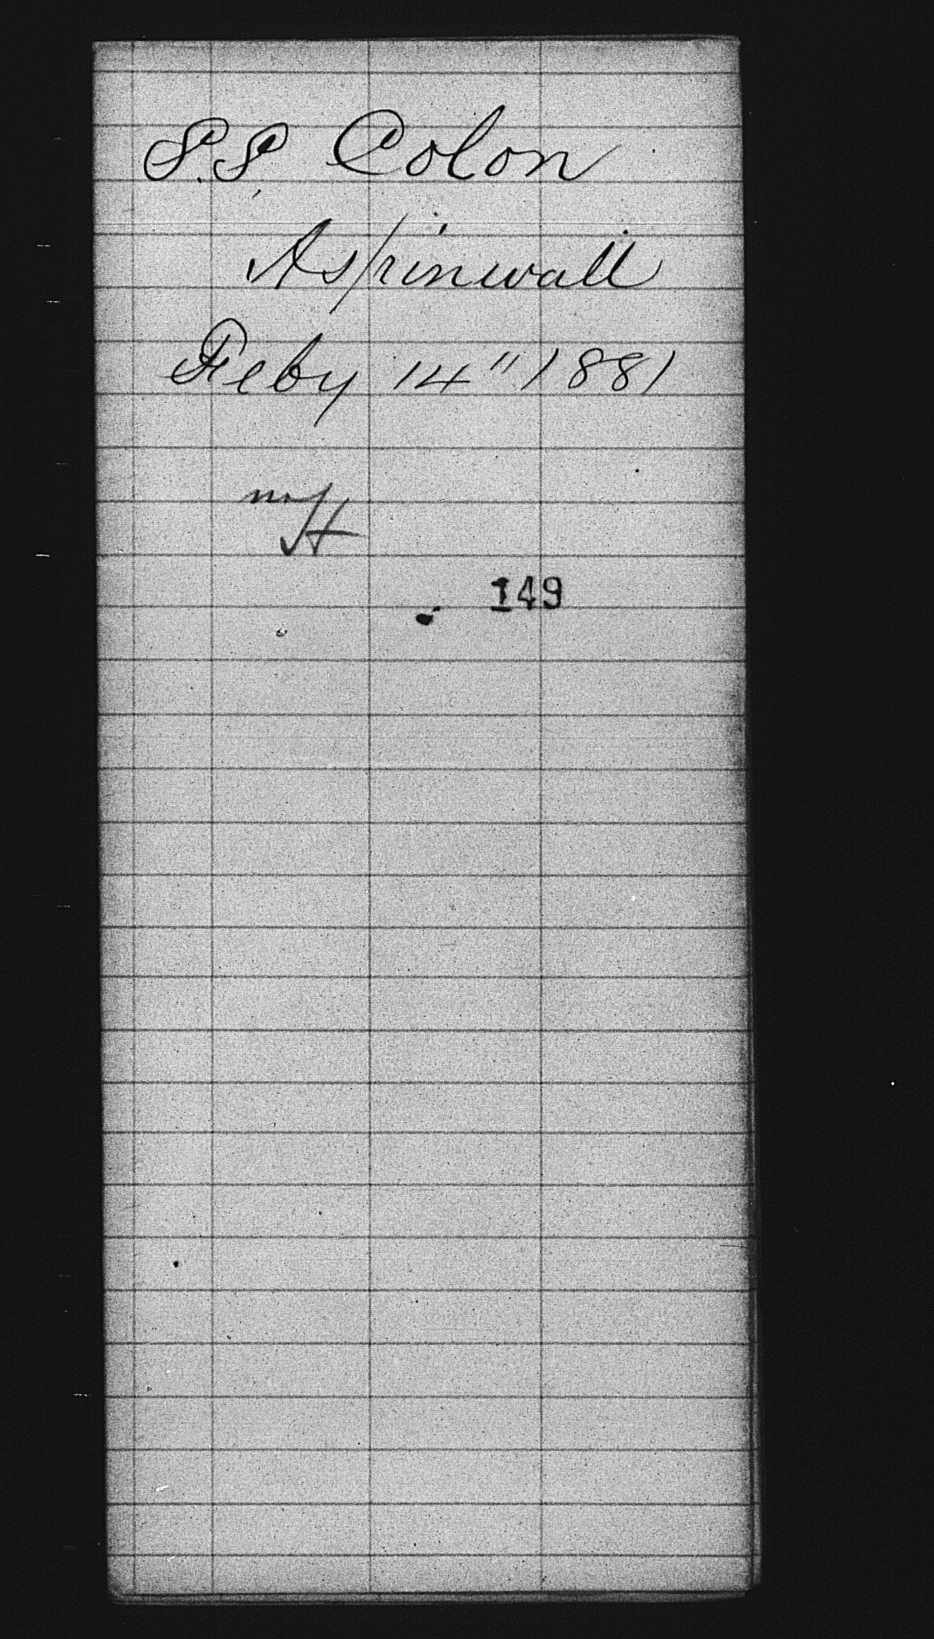 S.S. Colon
Aspinwall
Feby 14" 1881
149